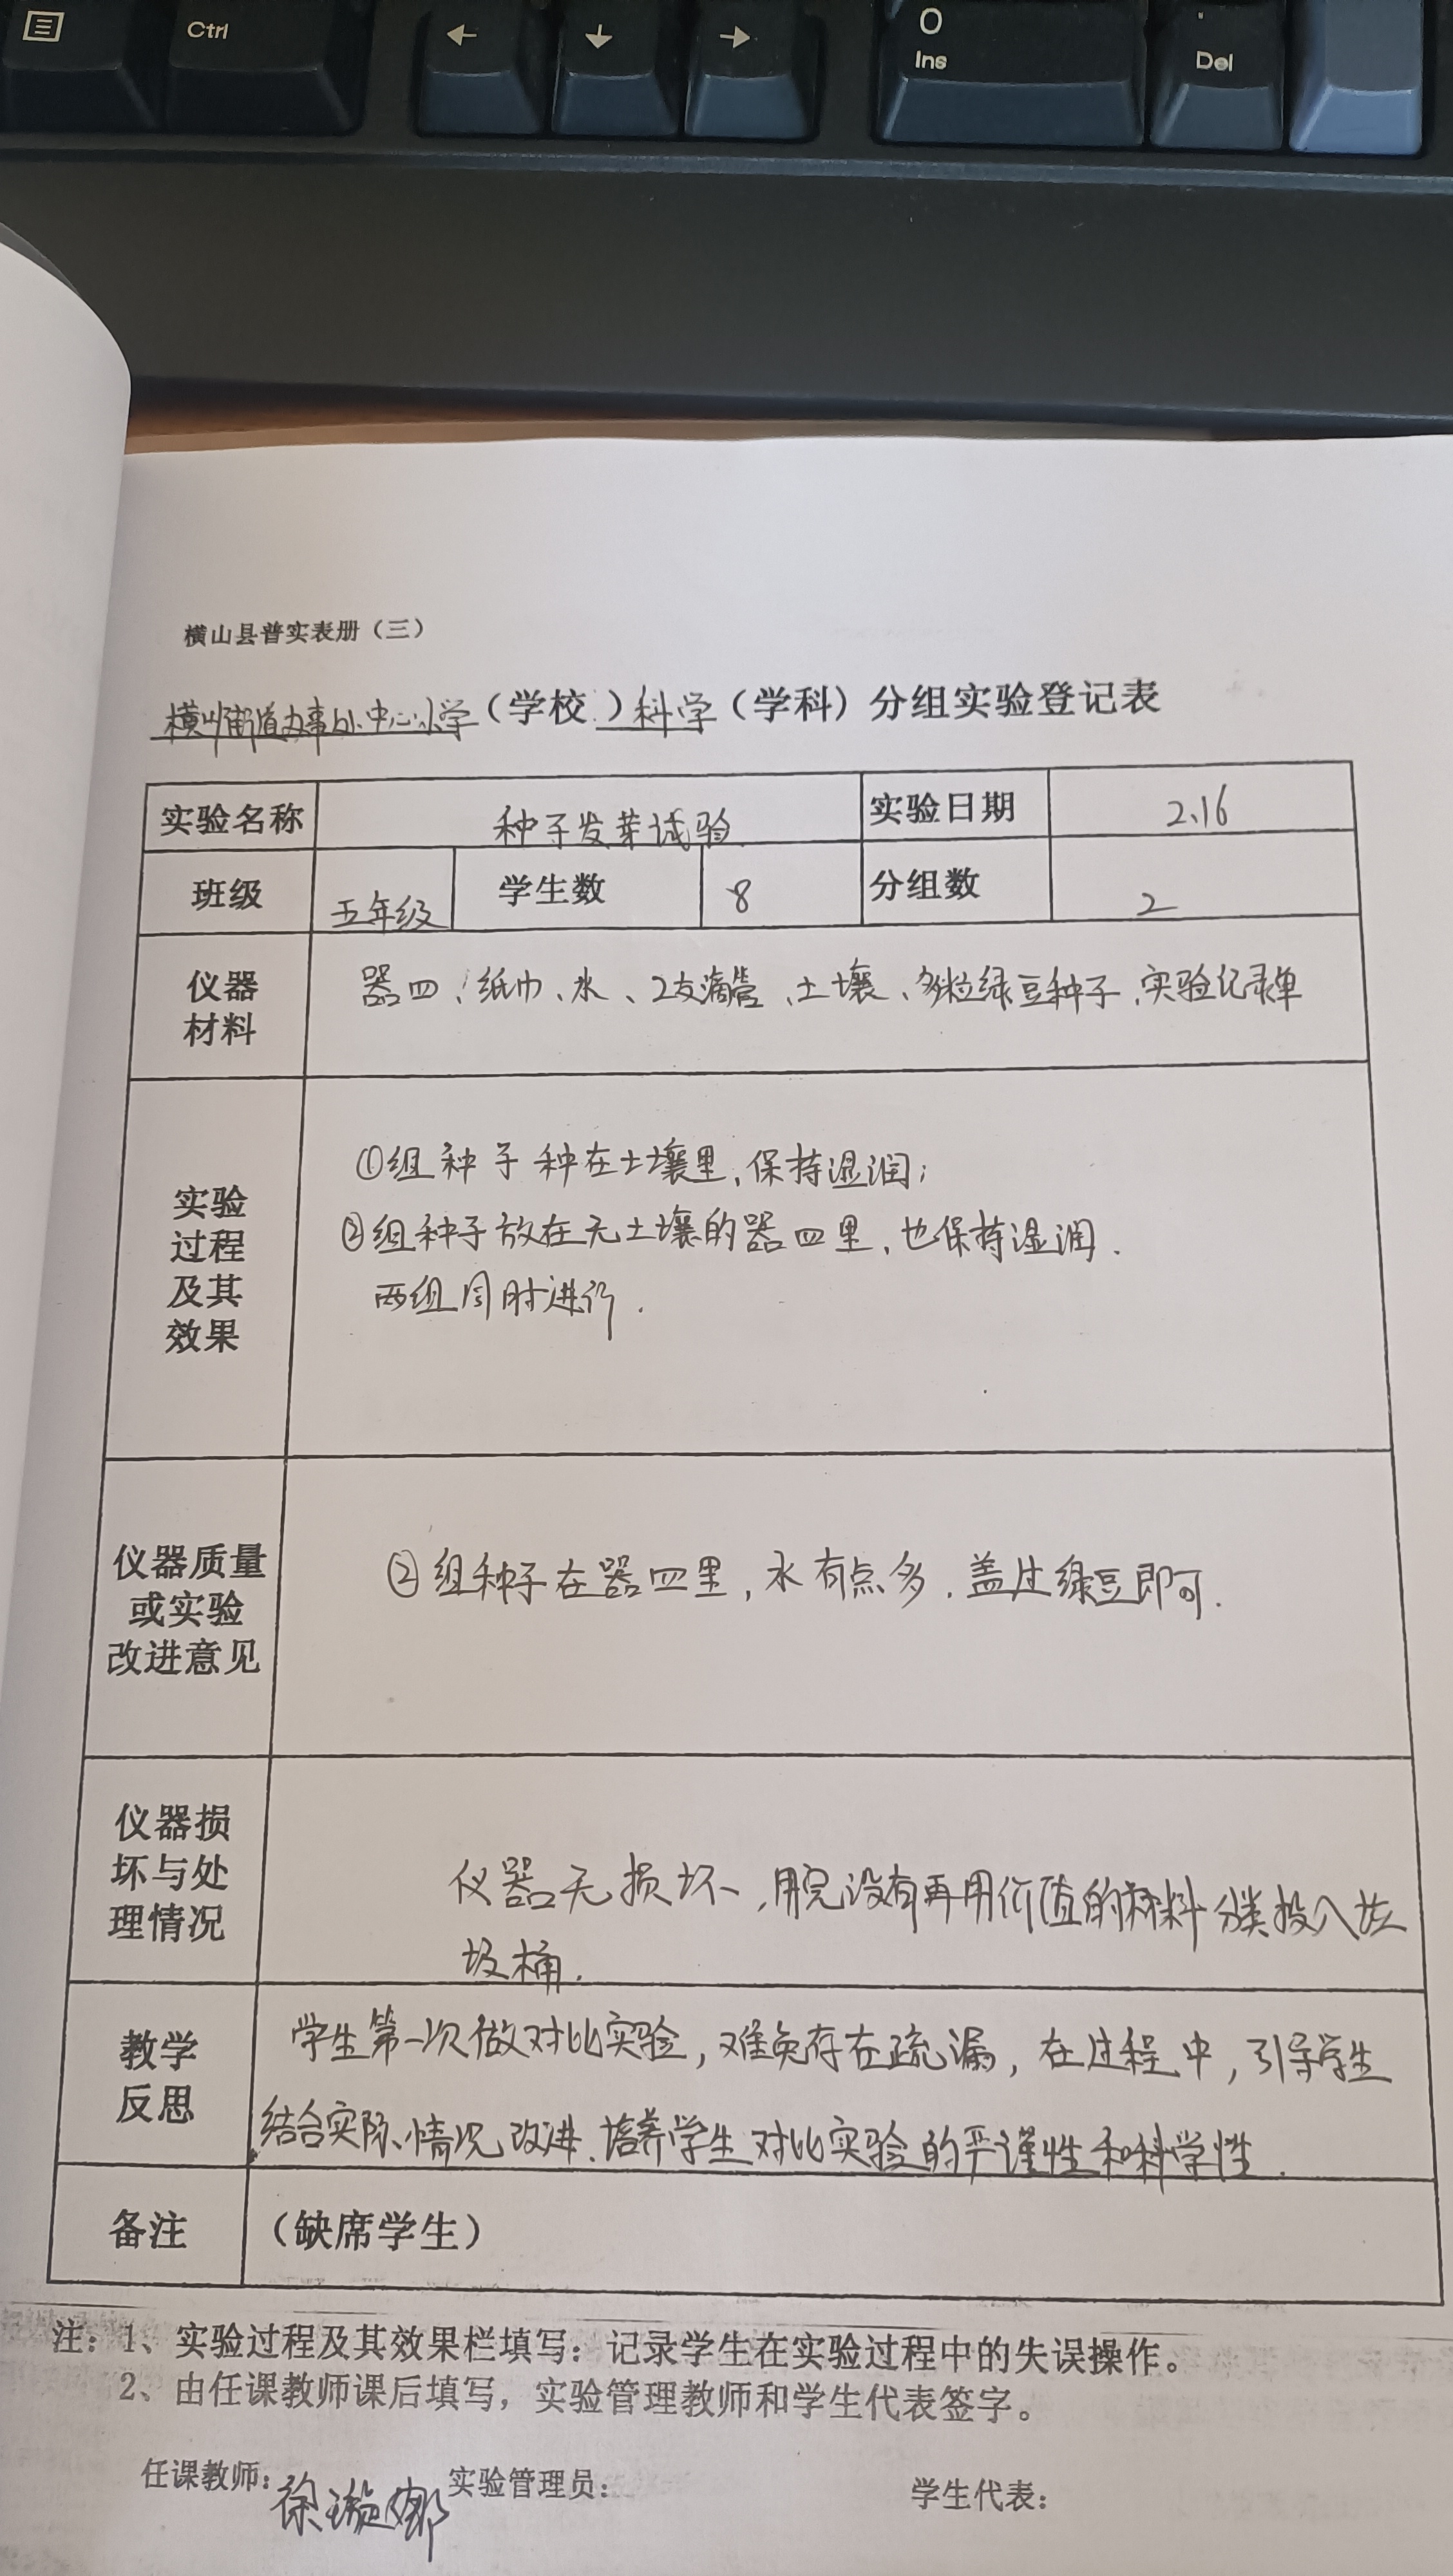 Ctrl
←
↓
→
0
Ins
.
Del
横山县普实表册（三）
横山街道办事处中心小学（学校）科学（学科）分组实验登记表
实验名称 种子发芽试验 实验日期 2.16
班级 五年级 学生数 8 分组数 2
仪器
材料
器皿、纸巾、水、2支滴管、土壤、多粒绿豆种子、实验记录单
实验
过程
及其
效果
①组种子种在土壤里,保持湿润;
②组种子放在无土壤的器皿里,也保持湿润.
两组同时进行.
仪器质量
或实验
改进意见
②组种子在器皿里,水有点多.盖过绿豆即可.
仪器损
坏与处
理情况
仪器无损坏,用完没有再用价值的材料分类投入垃
圾桶.
教学
反思
学生第一次做对比实验,难免存在疏漏,在过程中,引导学生
结合实际情况改进.培养学生对比实验的严谨性和科学性.
备注 （缺席学生）
注：1、实验过程及其效果栏填写：记录学生在实验过程中的失误操作。
2、由任课教师课后填写，实验管理教师和学生代表签字。
任课教师：徐璇娜 实验管理员： 学生代表：